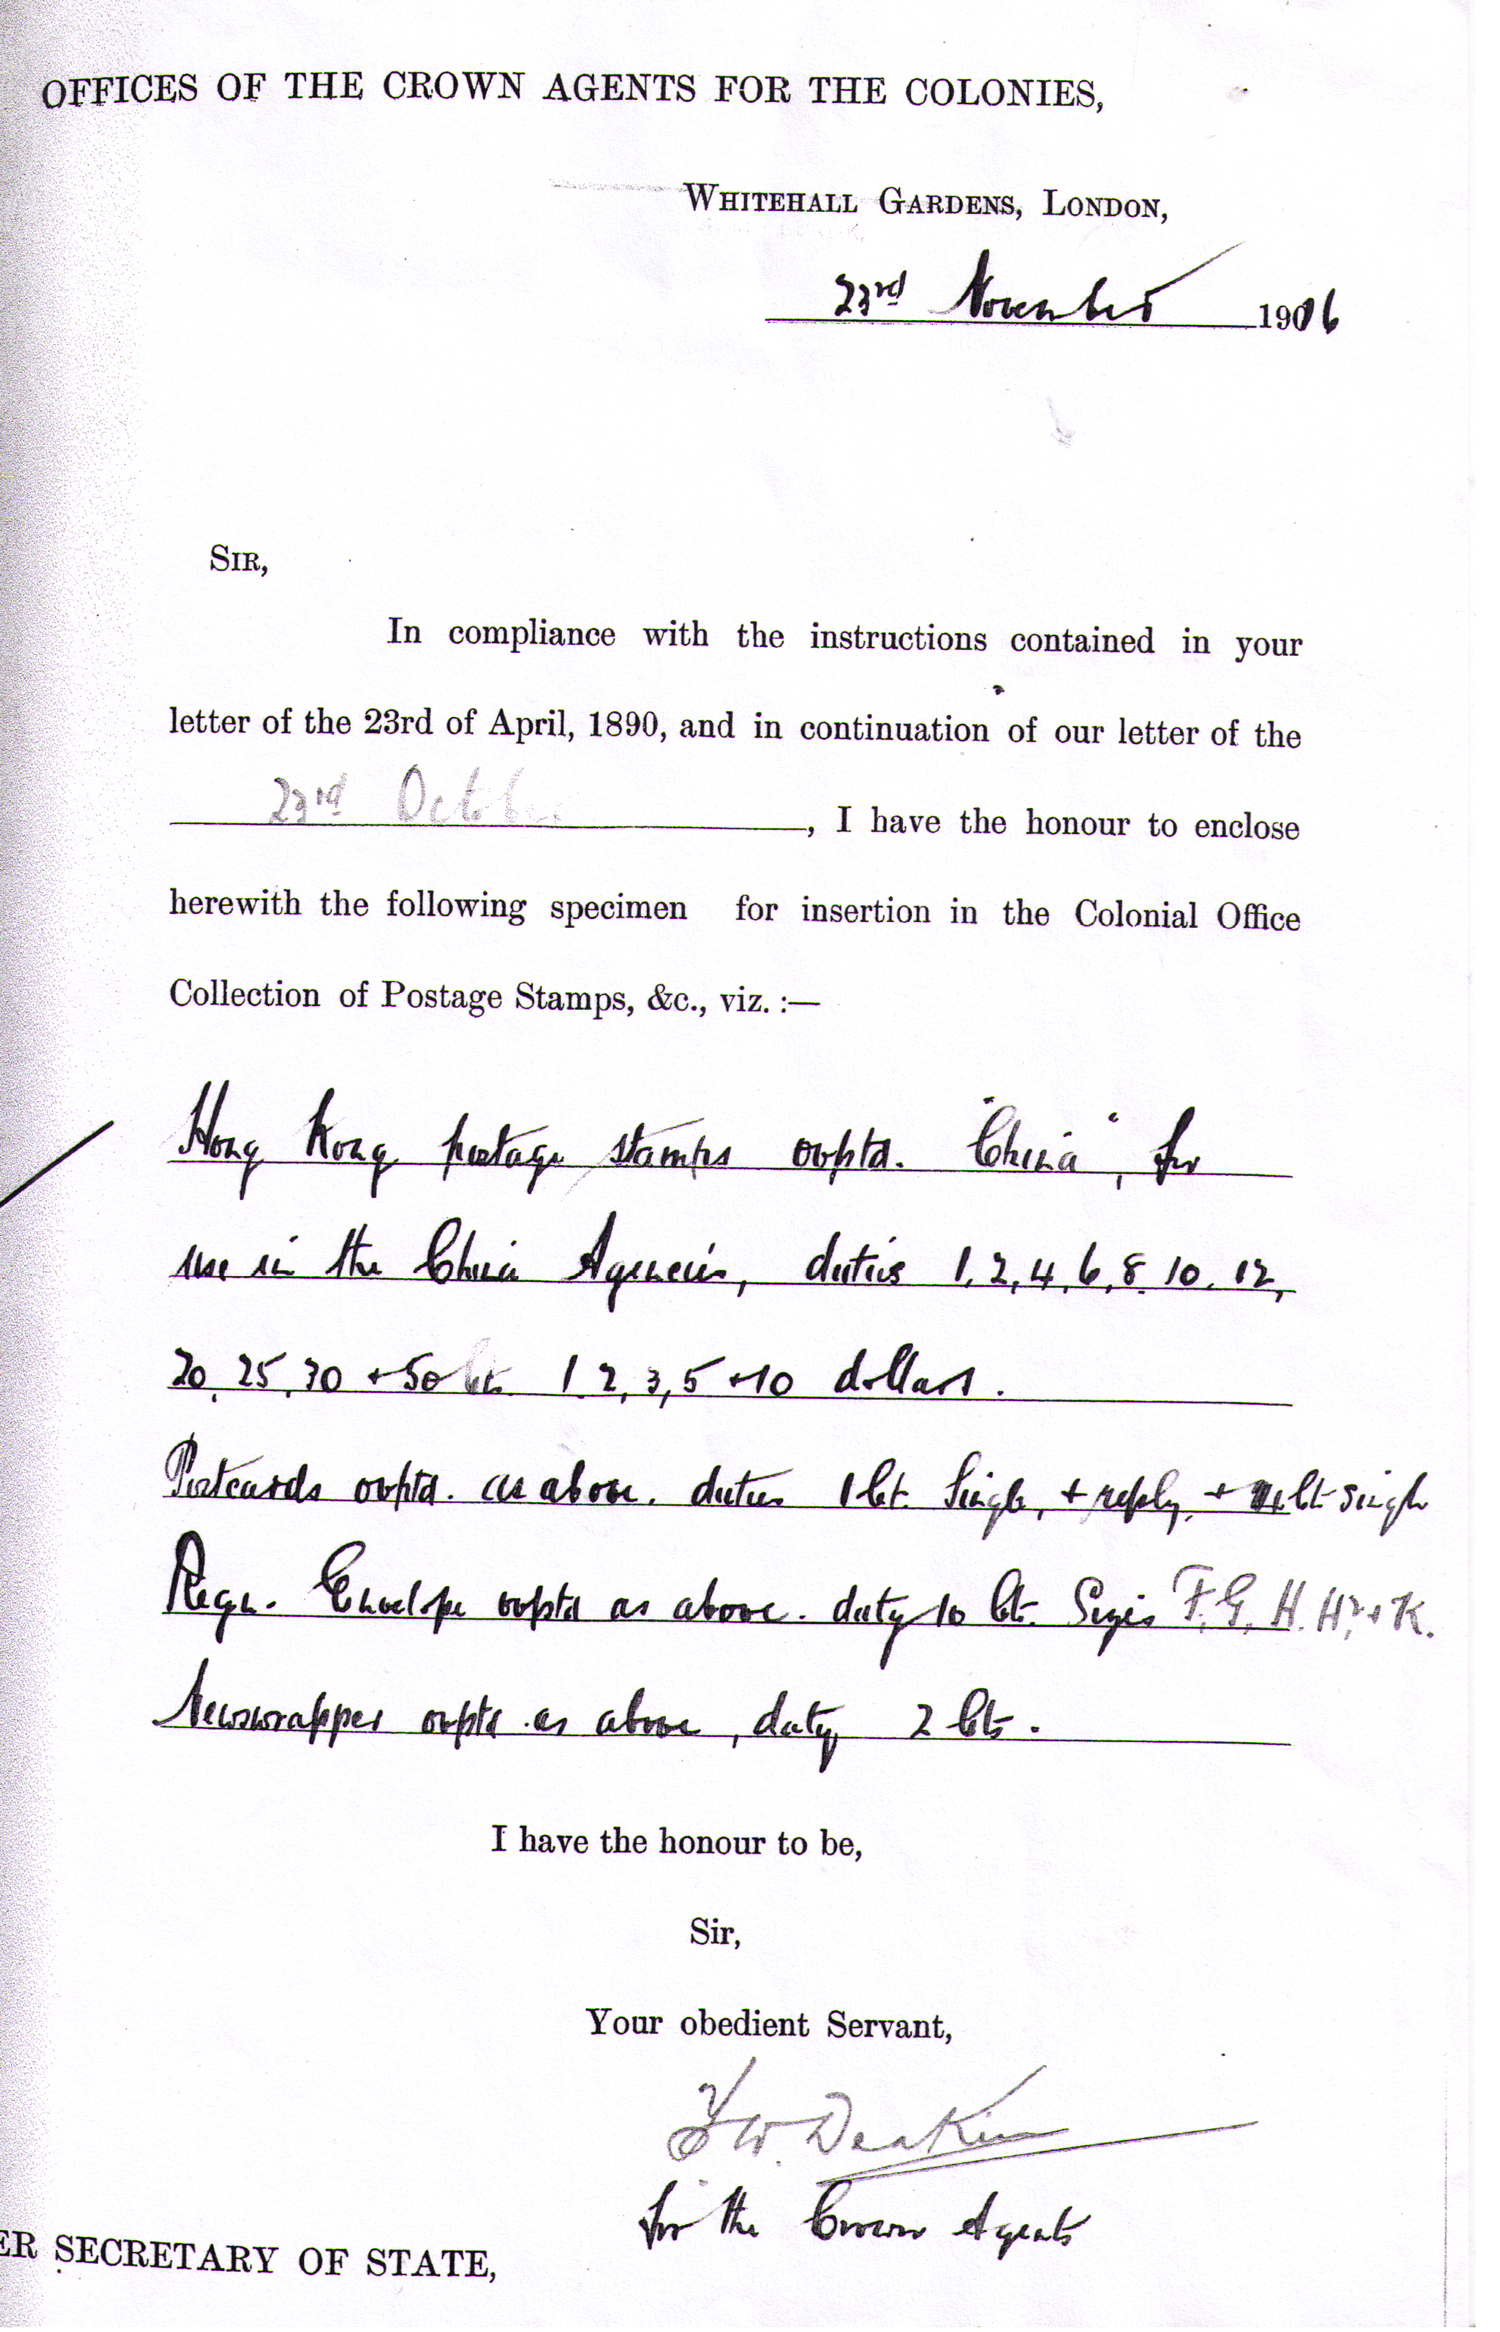 OFFICES OF THE CROWN AGENTS FOR THE COLONIES,
WHITEHALL GARDENS, LONDON,
23rd November 1916
SIR,
In compliance with the instructions contained in your
letter of the 23rd of April, 1890, and in continuation of our letter of the
23rd October, I have the honour to enclose
herewith the following specimen for insertion in the Colonial Office
Collection of Postage Stamps, &c., viz. :—
Hong Kong postage stamps ovptd. "China", for
use in the China Agencies, duties 1, 2, 4, 6, 8, 10, 12,
20, 25, 30 + 50 cts. 1, 2, 3, 5 + 10 dollars.
Postcards ovptd. as above. duties 1 ct. Single, + reply, + ct single
Regn. Envelope ovptd as above. duty 10 cts. Sizes F, G, H, H2, + K.
Newswrapper ovptd as above, duty 2 cts.
I have the honour to be,
Sir,
Your obedient Servant,
W. Deakin
for the Crown Agents
ER SECRETARY OF STATE,